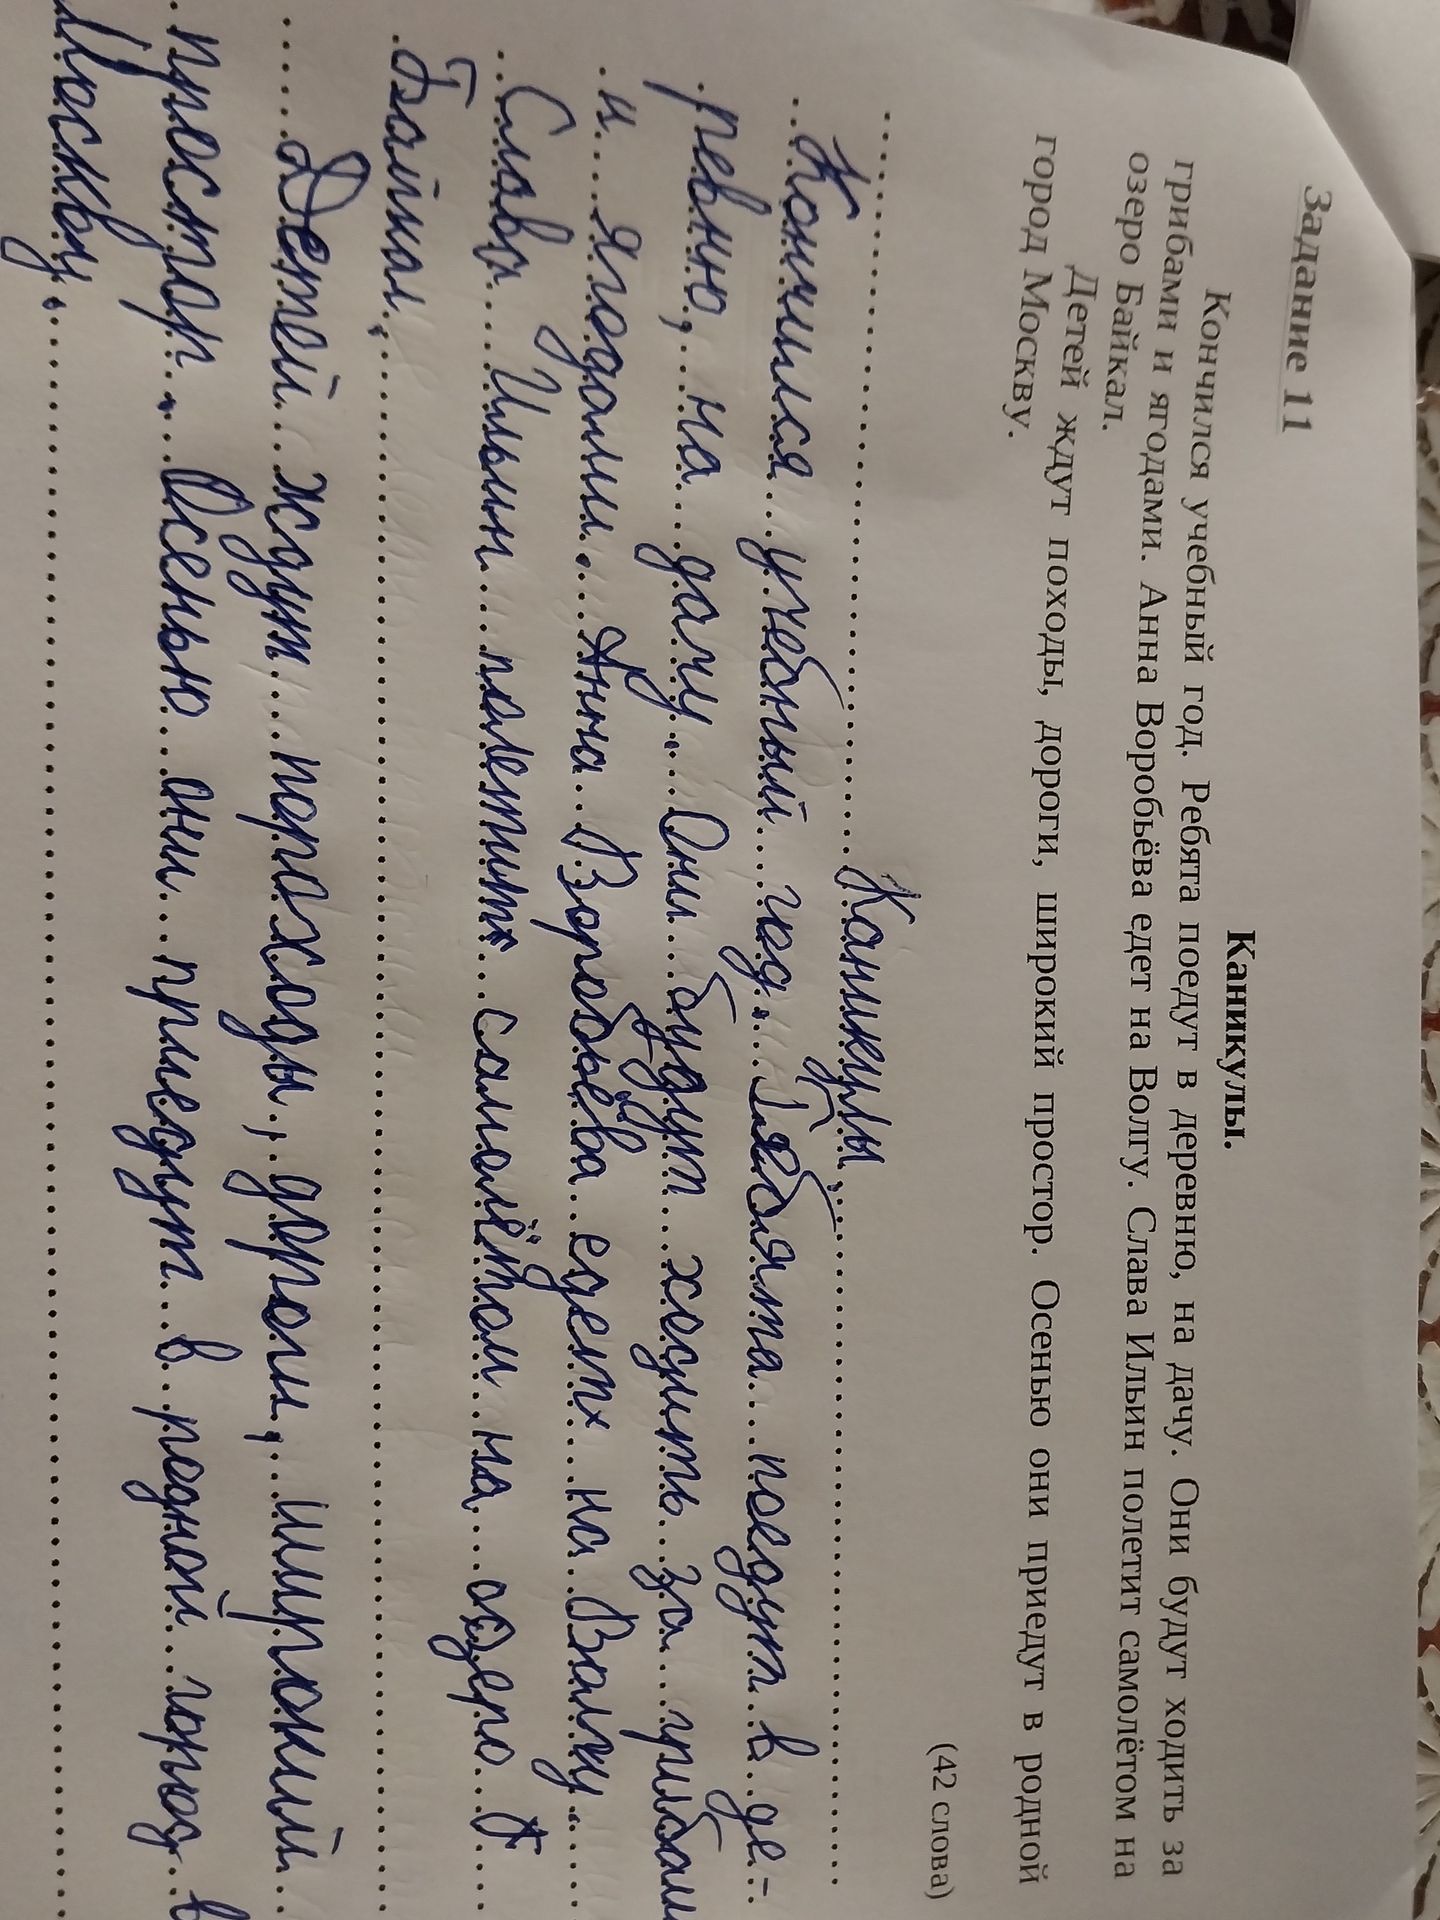 Задание 11
Каникулы.
Кончился учебный год. Ребята поедут в деревню, на дачу. Они будут ходить за
грибами и ягодами. Анна Воробьёва едет на Волгу. Слава Ильин полетит самолётом на
озеро Байкал.
Детей ждут походы, дороги, широкий простор. Осенью они приедут в родной
город Москву.
(42 слова)
Каникулы.
Кончился учебный год. Ребята поедут в де-
ревню, на дачу. Они будут ходить за грибами
и ягодами. Анна Воробьёва едет на Волгу.
Слава Ильин полетит самолётом на озеро
Байкал.
Детей ждут пороходы, дороги, широкий
простор. Осенью они приедут в родной город в
Москву.